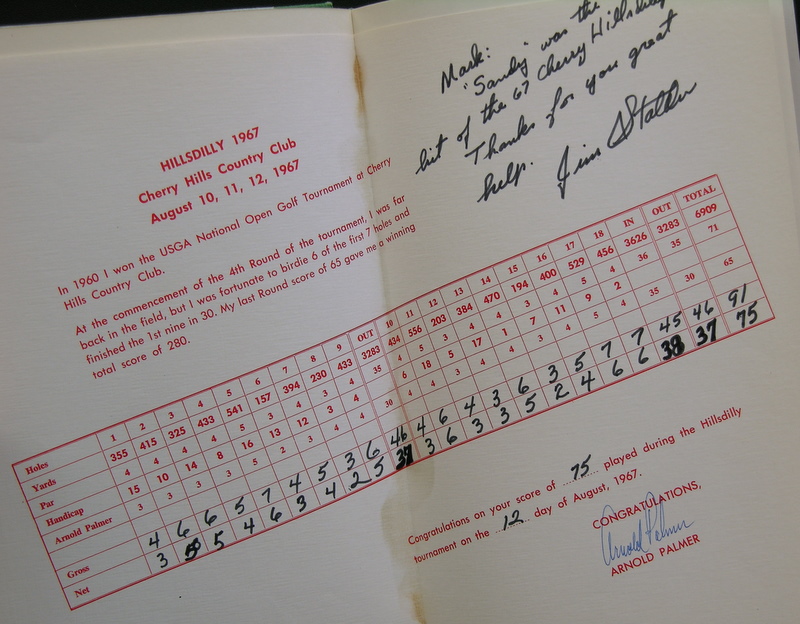 Mark:
"Sandy" was the
hit of the 67 Cherry Hillsdilly
Thanks for you great
help. Jim
HILLSDILLY 1967
Cherry Hills Country Club
August 10, 11, 12, 1967
In 1960 I won the USGA National Open Golf Tournament at Cherry
Hills Country Club.
At the commencement of the 4th Round of the tournament, I was far
back in the field, but I was fortunate to birdie 6 of the first 7 holes and
finished the 1st nine in 30. My last Round score of 65 gave me a winning
total score of 280.
Holes 1 2 3 4 5 6 7 8 9 OUT 10 11 12 13 14 15 16 17 18 IN OUT TOTAL
Yards 355 415 325 433 541 157 394 230 433 3283 434 556 203 384 470 194 400 529 456 3626 3283 6909
Par 4 4 4 4 5 3 4 3 4 35 4 5 3 4 4 3 4 5 4 36 35 71
Handicap 15 10 14 8 16 13 12 3 4 6 18 5 17 1 7 11 9 2
Arnold Palmer 3 3 3 3 5 2 3 4 4 30 4 4 3 4 4 3 4 5 4 35 30 65
Gross 4 6 6 5 7 4 5 3 6 46 4 6 4 3 6 3 5 7 7 45 46 91
Net 3 5 5 4 6 3 4 2 5 37 3 6 3 3 5 2 4 6 6 38 37 75
Congratulations on your score of ...75... played during the Hillsdilly
tournament on the ...12... day of August, 1967.
CONGRATULATIONS,
Arnold Palmer
ARNOLD PALMER